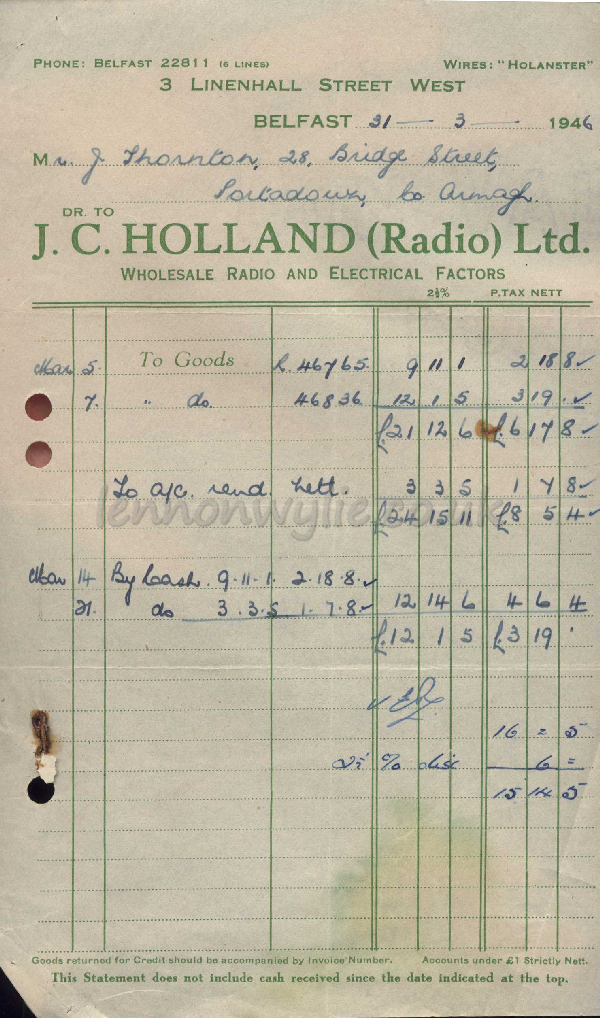 PHONE: BELFAST 22811 (6 LINES) WIRES: "HOLANSTER"
3 LINENHALL STREET WEST
BELFAST 31 — 3 — 1946
Mr. J Thornton, 28, Bridge Street,
Portadown, Co Armagh.
DR. TO
J. C. HOLLAND (Radio) Ltd.
WHOLESALE RADIO AND ELECTRICAL FACTORS
2½% P.TAX NETT
Mar 5. To Goods 46765. 9 11 1 2 18 8 ✓
7. " do. 46836 12 1 5 3 19 . ✓
£21 12 6 £6 17 8 ✓
To a/c. rend. Nett. 3 3 5 1 7 8 ✓
lennonwylie.co.uk
£24 15 11 £8 5 4 ✓
Mar 14 By Cash. 9.11.1. 2.18.8. ✓
21. do 3.3.5 1.7.8. ✓ 12 14 6 4 6 4
£12 1 5 £3 19 '
16 = 5
2½ % disc 6 =
15 14 5
Goods returned for Credit should be accompanied by Invoice Number. Accounts under £1 Strictly Nett.
This Statement does not include cash received since the date indicated at the top.